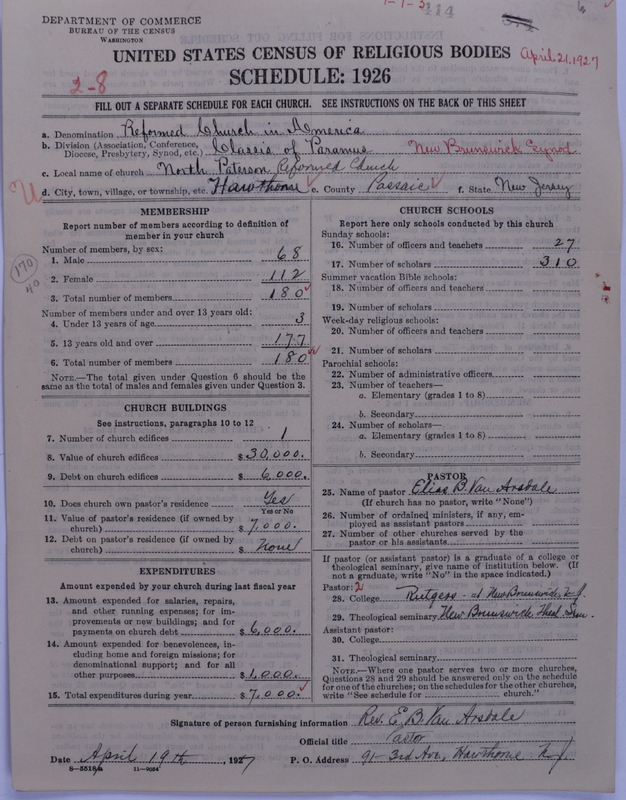 DEPARTMENT OF COMMERCE
BUREAU OF THE CENSUS
WASHINGTON
UNITED STATES CENSUS OF RELIGIOUS BODIES
April 21, 1927
SCHEDULE: 1926
2-8
FILL OUT A SEPARATE SCHEDULE FOR EACH CHURCH. SEE INSTRUCTIONS ON THE BACK OF THIS SHEET
a. Denomination Reformed Church in America
b. Division (Association, Conference, Diocese, Presbytery, Synod, etc.) Classis of Paramus New Brunswick Synod
c. Local name of church North Paterson Reformed Church
d. City, town, village, or township, etc. Hawthorne e. County Passaic f. State New Jersey
MEMBERSHIP
Report number of members according to definition of
member in your church
Number of members, by sex:
1. Male 68
2. Female 112
3. Total number of members 180
170
40
Number of members under and over 13 years old:
4. Under 13 years of age 3
5. 13 years old and over 177
6. Total number of members 180
NOTE.—The total given under Question 6 should be the
same as the total of males and females given under Question 3.
CHURCH BUILDINGS
See instructions, paragraphs 10 to 12
7. Number of church edifices 1
8. Value of church edifices $ 30,000.
9. Debt on church edifices $ 6,000.
10. Does church own pastor's residence Yes
Yes or No
11. Value of pastor's residence (if owned by
church) $ 7,000.
12. Debt on pastor's residence (if owned by
church) $ None
EXPENDITURES
Amount expended by your church during last fiscal year
13. Amount expended for salaries, repairs,
and other running expenses; for im-
provements or new buildings; and for
payments on church debt $ 6,000.
14. Amount expended for benevolences, in-
cluding home and foreign missions; for
denominational support; and for all
other purposes $ 1,000.
15. Total expenditures during year $ 7,000.
CHURCH SCHOOLS
Report here only schools conducted by this church
Sunday schools:
16. Number of officers and teachers 27
17. Number of scholars 310
Summer vacation Bible schools:
18. Number of officers and teachers
19. Number of scholars
Week-day religious schools:
20. Number of officers and teachers
21. Number of scholars
Parochial schools:
22. Number of administrative officers
23. Number of teachers—
a. Elementary (grades 1 to 8)
b. Secondary
24. Number of scholars—
a. Elementary (grades 1 to 8)
b. Secondary
PASTOR
25. Name of pastor Elias B. Van Arsdale
(If church has no pastor, write "None")
26. Number of ordained ministers, if any, em-
ployed as assistant pastors
27. Number of other churches served by the
pastor or his assistants
If pastor (or assistant pastor) is a graduate of a college or
theological seminary, give name of institution below. (If
not a graduate, write "No" in the space indicated.)
Pastor: 2
28. College Rutgers - at New Brunswick, N.J.
29. Theological seminary New Brunswick Theol. Sem.
Assistant pastor:
30. College
31. Theological seminary
NOTE.—Where one pastor serves two or more churches,
Questions 28 and 29 should be answered only on the schedule
for one of the churches; on the schedules for the other churches,
write "See schedule for church."
Signature of person furnishing information Rev. E. B. Van Arsdale
Official title Pastor
Date April 19th, 1927
P. O. Address 91-3rd Ave, Hawthorne N.J.
11-9054